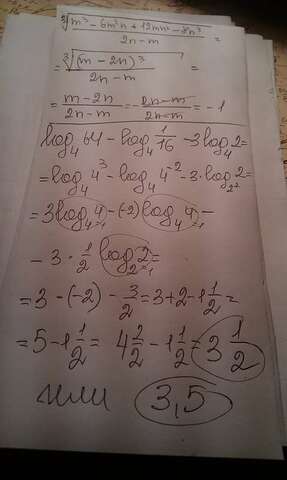 ∛(m³ - 6m²n + 12mn² - 8n³) / (2n - m) =
= ∛((m - 2n)³) / (2n - m) =
= (m - 2n) / (2n - m) = - (2n - m) / (2n - m) = - 1
log₄64 - log₄ 1/16 - 3log₄2 =
= log₄4³ - log₄4⁻² - 3·log₂²2 =
= 3log₄4 - (-2)log₄4 -
=1 =1
- 3 · 1/2 log₂2 =
=1
= 3 - (-2) - 3/2 = 3 + 2 - 1 1/2 =
= 5 - 1 1/2 = 4 2/2 - 1 1/2 = 3 1/2
или 3,5